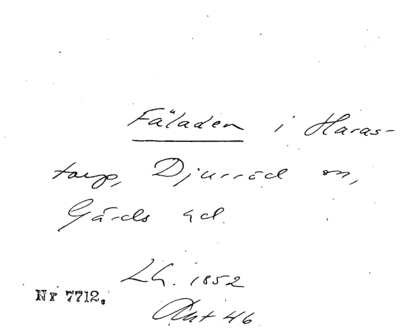 Fäladen i Haras-
torp, Djurröd sn,
Gärds hd.
Lh. 1852
Akt 46
Nr 7712.